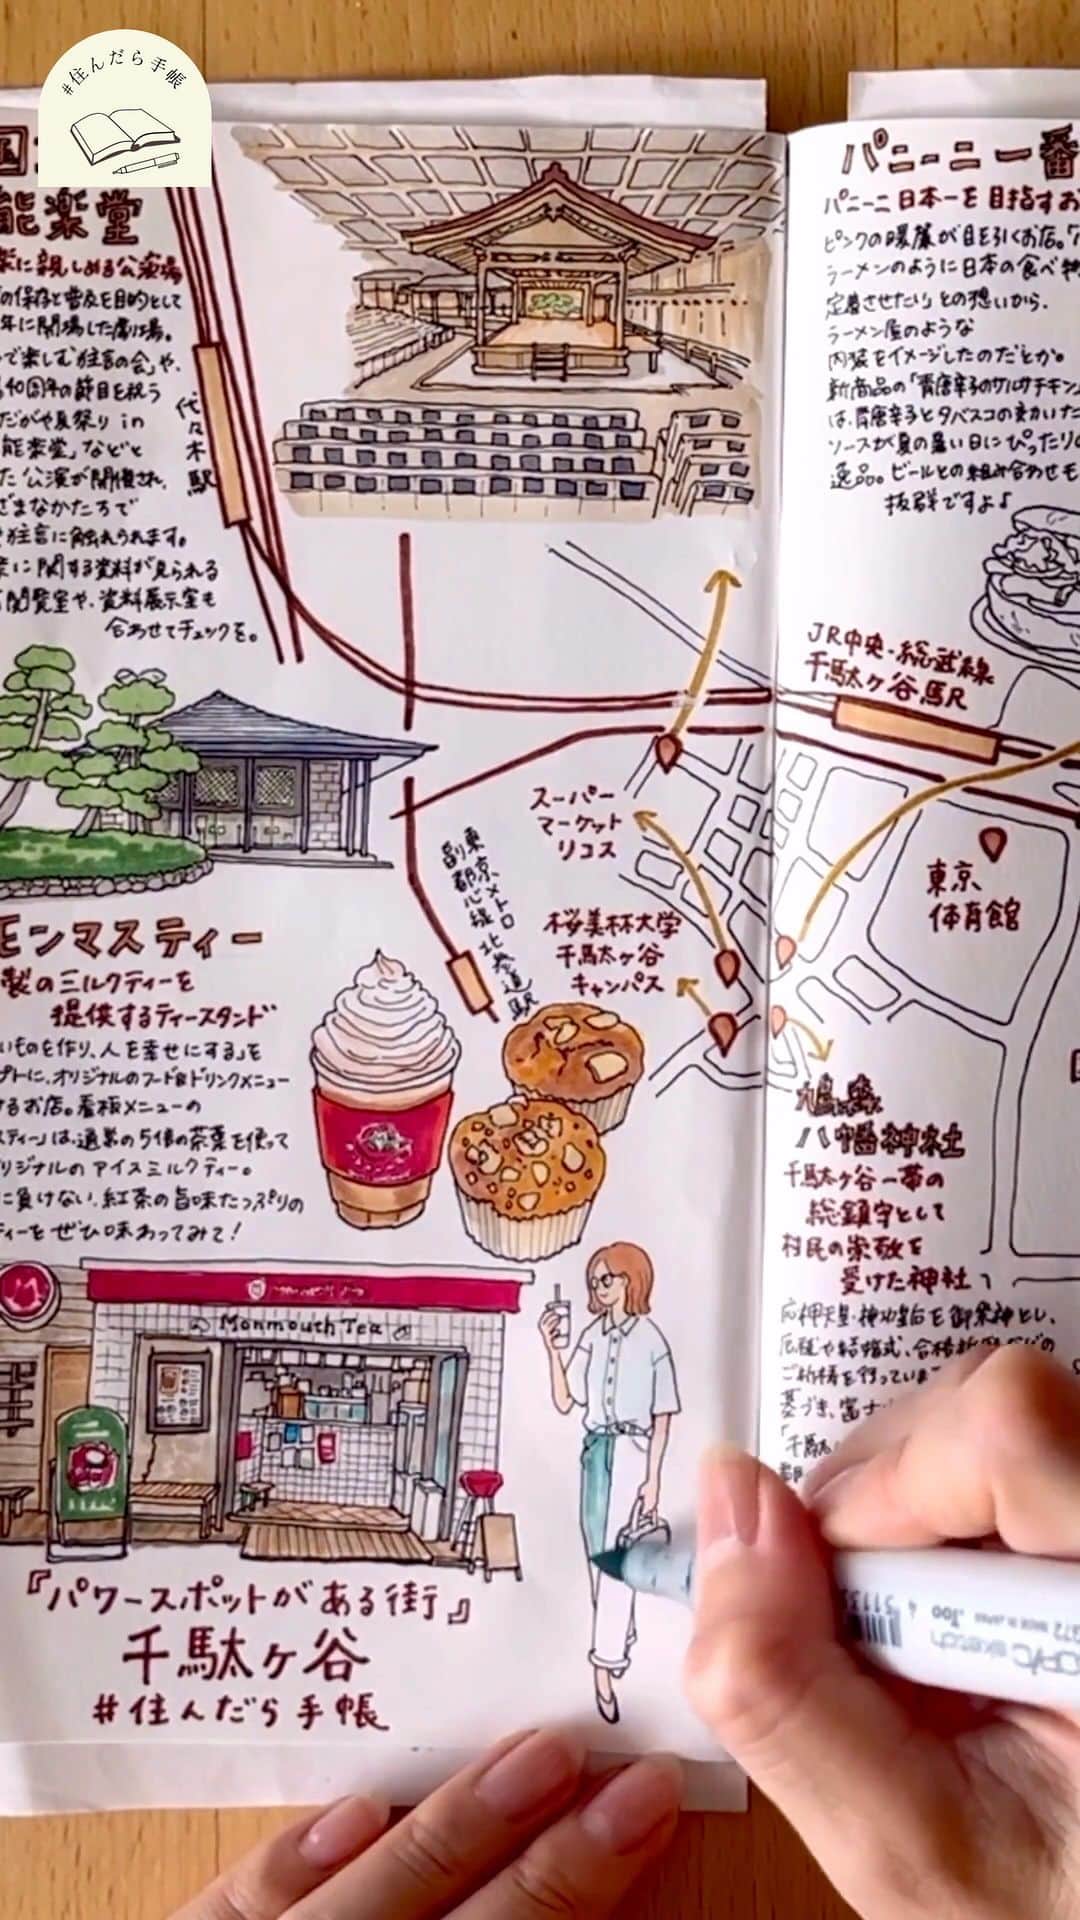 #住んだら手帳
国
能楽堂
楽に親しめる公演場
の保存と普及を目的として
年に開場した劇場。
で楽しむ狂言の会」や、
40周年の節目を祝う
だがや夏祭り in
能楽堂」などと
た公演が開催され、
ざまなかたちで
狂言に触れられます。
に関する資料が見られる
閲覧室や、資料展示室も
合わせてチェックを。
代々木駅
モンマスティー
製のミルクティーを
提供するティースタンド
いものを作り、人を幸せにする」を
プトに、オリジナルのフード&ドリンクメニュー
するお店。看板メニューの
スティー」は、通常の5倍の茶葉を使って
リジナルのアイスミルクティー。
に負けない、紅茶の旨味たっぷりの
ティーをぜひ味わってみて!
Monmouth Tea
『パワースポットがある街』
千駄ヶ谷
#住んだら手帳
東京メトロ
副都心線 北参道駅
スーパー
マーケット
リコス
桜美林大学
千駄ヶ谷
キャンパス
パニーニ一番
パニーニ日本一を目指すお
ピンクの暖簾が目を引くお店。「
ラーメンのように日本の食べ物
定着させたい」との想いから、
ラーメン屋のような
内装をイメージしたのだとか。
新商品の「青唐辛子のサルサチキン」
は、青唐辛子とタバスコの効いた
ソースが夏の暑い日にぴったりの
逸品。ビールとの組み合わせも
抜群ですよ♪
JR中央・総武線
千駄ヶ谷駅
東京
体育館
鳩森
八幡神社
千駄ヶ谷一帯の
総鎮守として
村民の崇敬を
受けた神社
応神天皇・神功皇后を御祭神とし、
厄祓や結婚式、合格祈願などの
ご祈祷を行っていま
基づき、富士
「千駄